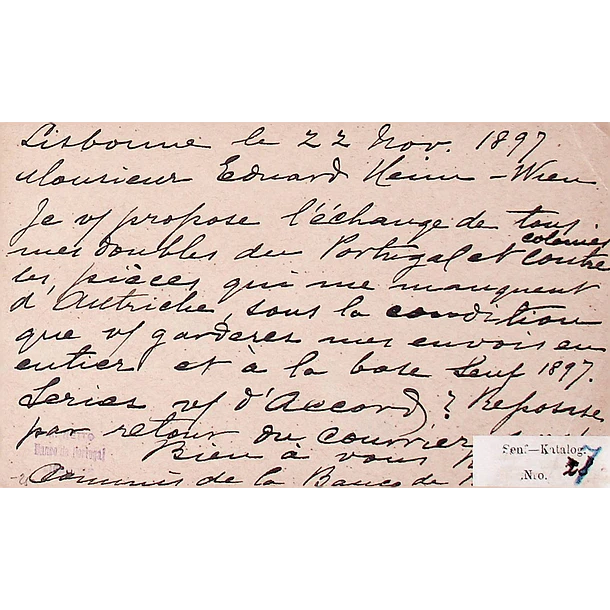 Lisbonne le 22 Nov. 1897
Monsieur Eduard Heim - Wien
Je vs propose l'échange de tous
mes doubles du Portugal et colonies contre
les pièces qui me manquent
d'Autriche, sous la condition
que vs garderez mes envois en
entier et à la base Senf 1897.
Seriez vs d'Accord? Reponse
par retour du courrier
Bien à vous
Commis de la Banco de
Banco de Portugal
Senf—Katalog.
Nro.